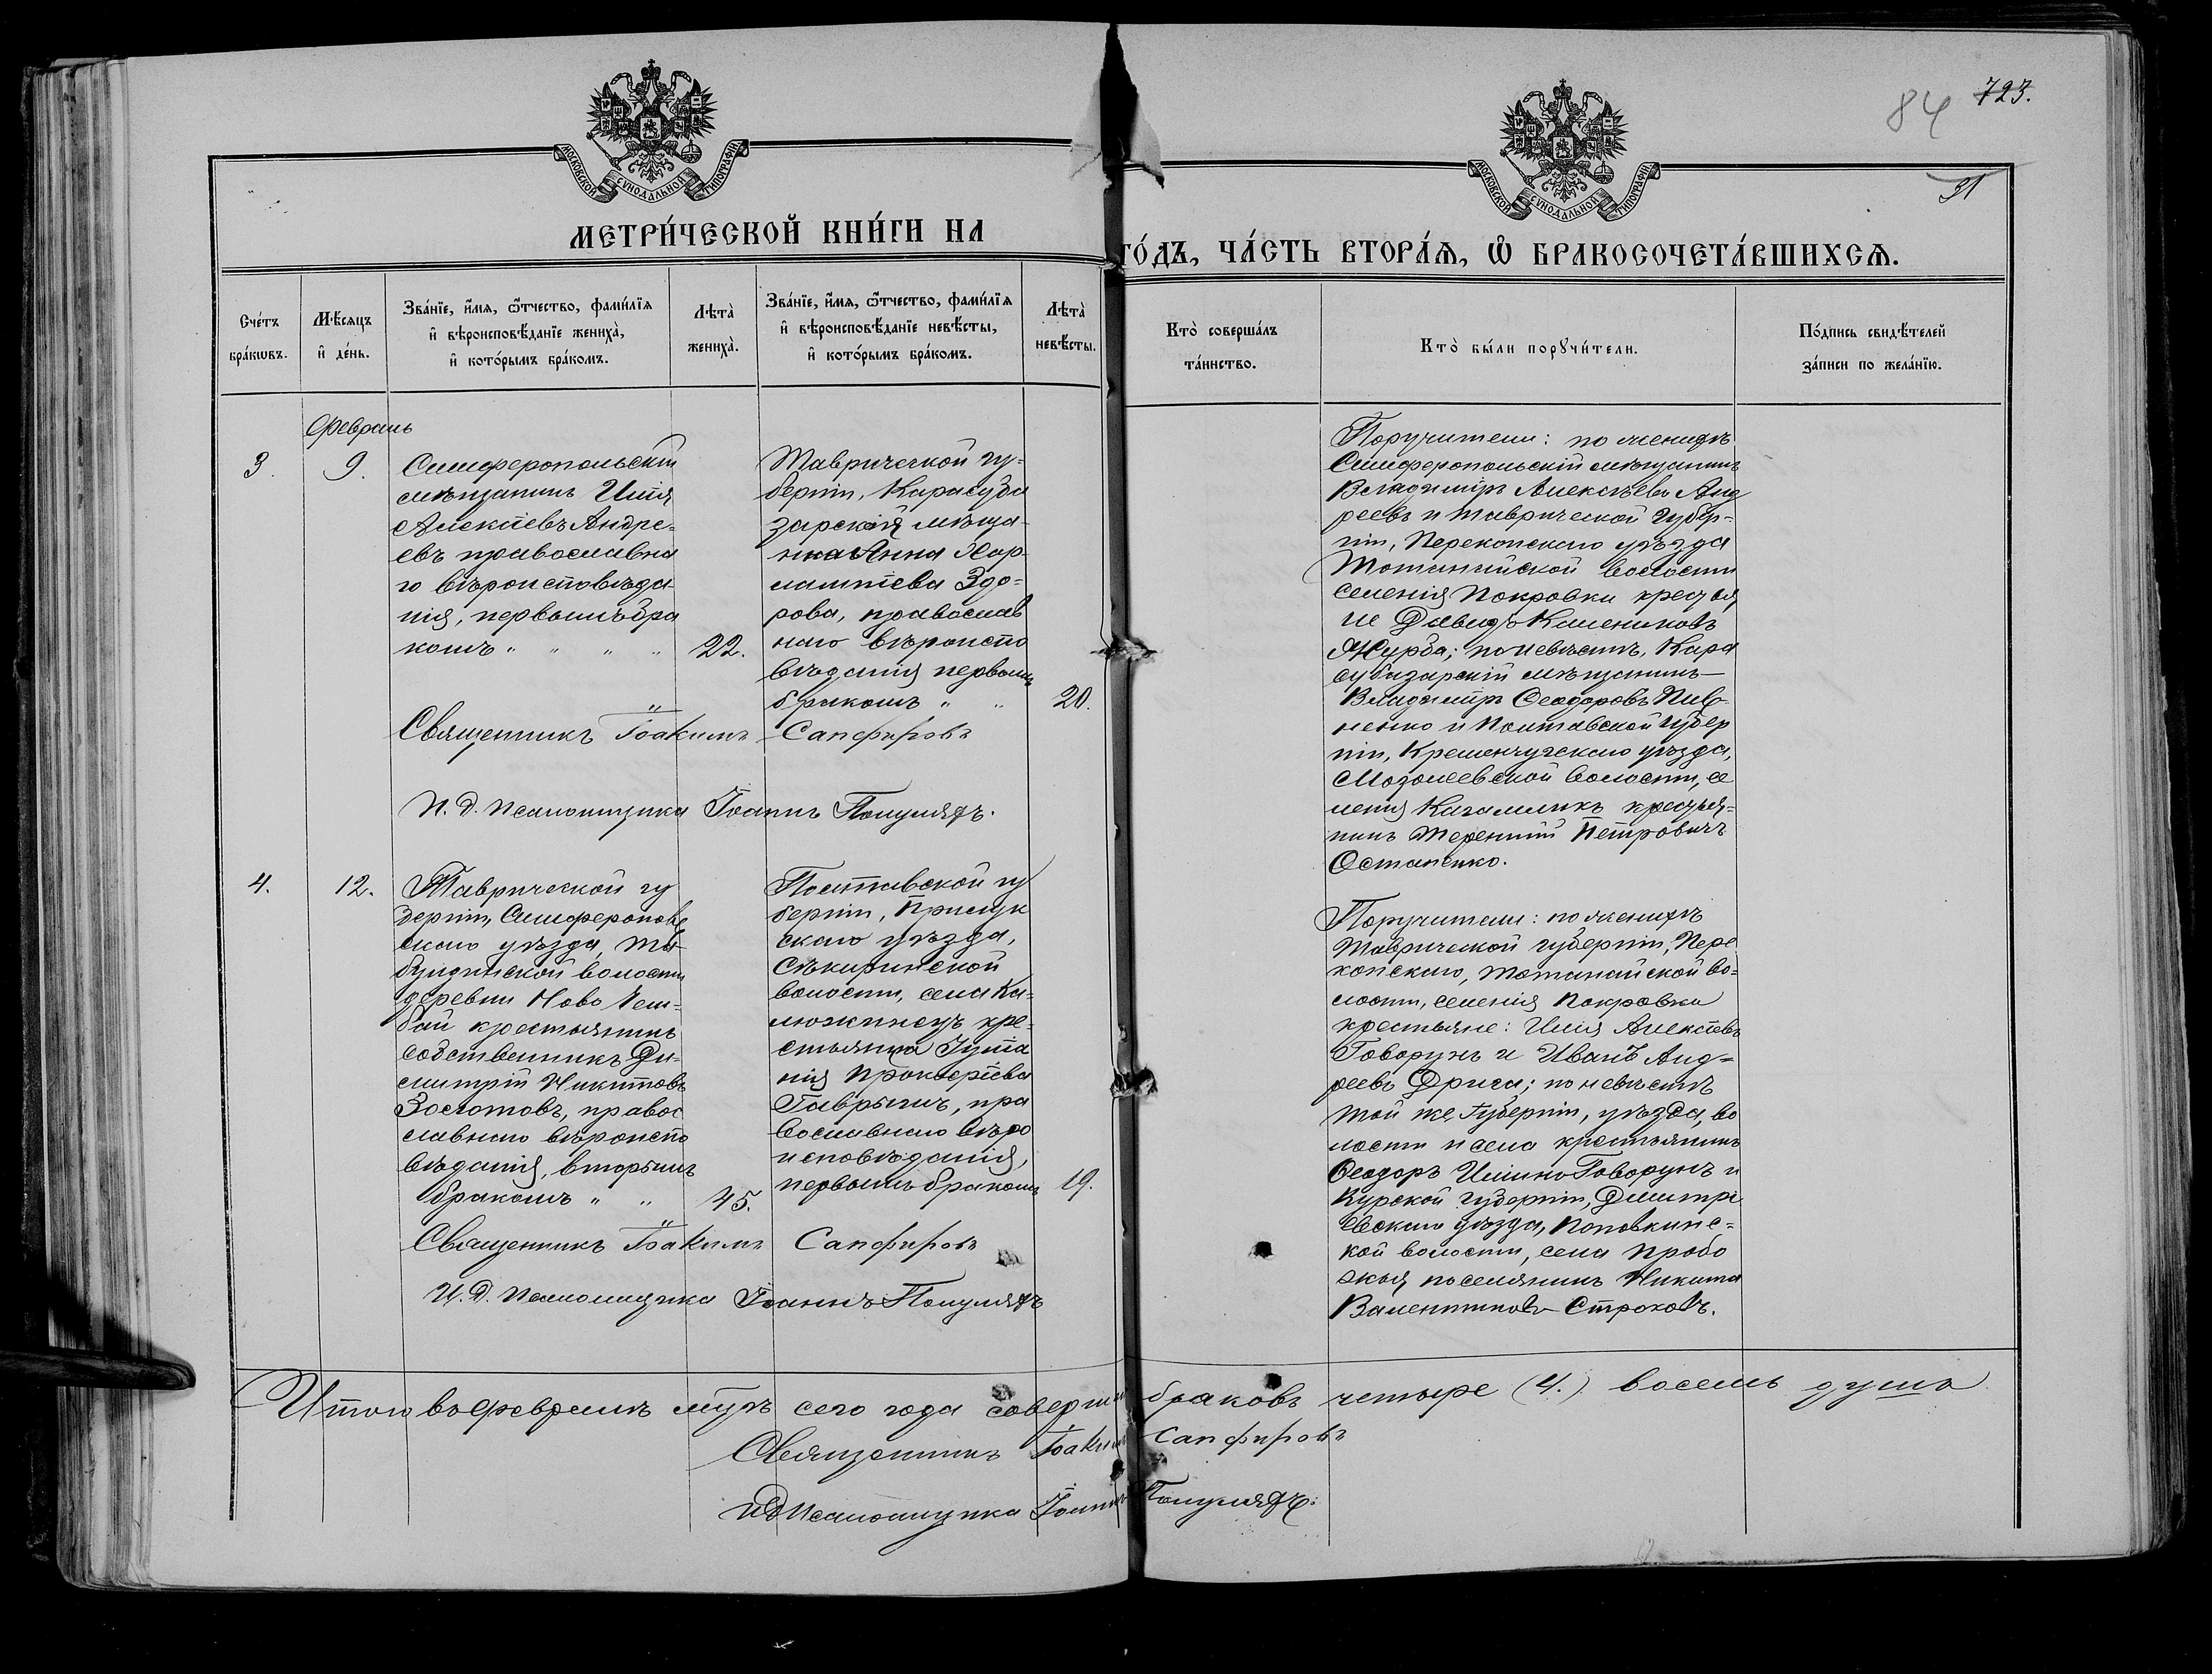 84 723.
31
МОСКОВСКОЙ СѴНОДАЛЬНОЙ ТИПОГРАФІИ
МОСКОВСКОЙ СѴНОДАЛЬНОЙ ТИПОГРАФІИ
МЕТРИ́ЧЕСКОЙ КНИ́ГИ НА
ГО́ДЪ, ЧА́СТЬ ВТОРА́Ѧ, Ѽ БРАКОСОЧЕТА́ВШИХСѦ.
Сче́тъ
бра́кѡвъ.
Мѣ́сяцъ
и҆ де́нь.
Зва́нїе, и҆́мѧ, ѻ҆́тчество, фами́лїѧ
и҆ вѣроисповѣ́данїе жениха̀,
и҆ кото́рымъ бра́комъ.
Лѣта̀
жениха̀.
Зва́нїе, и҆́мѧ, ѻ҆́тчество, фами́лїѧ
и҆ вѣроисповѣ́данїе невѣ́сты,
и҆ кото́рымъ бра́комъ.
Лѣта̀
невѣ́сты.
Кто̀ соверша́лъ
та́инство.
Кто̀ бы́ли порꙋчи́тели.
По́дпись свидѣ́телей
за́писи по жела́нїю.
Февраль
3. 9.
Симферопольскій
мѣщанинъ Илія
Алексіевъ Андре=
евъ православна
го вѣроисповѣда
нія, первымъ бра
комъ " " " " 22.
Таврической гу=
берніи, Карасуба
зарская мѣща-
нка Анна Хар
лампіева Здо=
рова, православ
наго вѣроиспо
вѣданія первымъ
бракомъ " " 20.
Священникъ Іоакимъ Сапфировъ
И. д. псаломщика Іоаннъ Полуляхъ.
Поручители: по женихѣ
Симферопольскій мѣщанинъ
Владиміръ Алексѣевъ Анд
реевъ и Таврической губер=
ніи, Перекопскаго уѣзда
Тотанайской волости
селенія Покровки крестья
не Давидъ Климениковъ
Журба; по невѣстѣ, Кара
субазарскій мѣщанинъ
Владиміръ Ѳеодоровъ Пив
ненко и Полтавской губер
ніи, Кременчугскаго уѣзда,
Мозолеевской волости, се
ленія Кагамлыкъ крестья=
нинъ Терентій Петровичъ
Остапенко.
4. 12.
Таврической гу
берніи, Симферополь
скаго уѣзда,
булдинской волости
деревни Ново
бай крестьянинъ
собственникъ Ди=
митрій Никитовъ
Золотовъ, правос
лавнаго вѣроиспо
вѣданія, вторымъ
бракомъ " " 45.
Полтавской гу
берніи, Прилук
скаго уѣзда,
Сѣкиринской
волости, села Ка=
люжинецъ кре=
стьянка Іулiа
нія Прокофіева
Гаврышъ, пра
вославнаго вѣро
исповѣданія,
первымъ бракомъ 19.
Священникъ Іоакимъ Сапфировъ
И. д. псаломщика Іоаннъ Полуляхъ
Поручители: по женихѣ
Таврической губерніи, Пере
копскаго, Тотанайской во=
лости, селенія Покровки
крестьяне: Илія Алексіевъ
Говорунъ и Иванъ Анд=
реевъ Дрига; по невѣстѣ
той же губерніи, уѣзда, во
лости и села крестьянинъ
Ѳеодоръ Говорунъ и
Курской губерніи, Димитрі
евскаго уѣзда, Поповкинс=
кой волости, села Пробо
жья поселянинъ Никита
Валентиновъ Строковъ.
Итого въ Февралѣ м-цѣ сего года соверш браковъ четыре (4.) восемь душъ
Священникъ Іоакимъ Сапфировъ
И Д псаломщика Іоаннъ Полуляхъ.